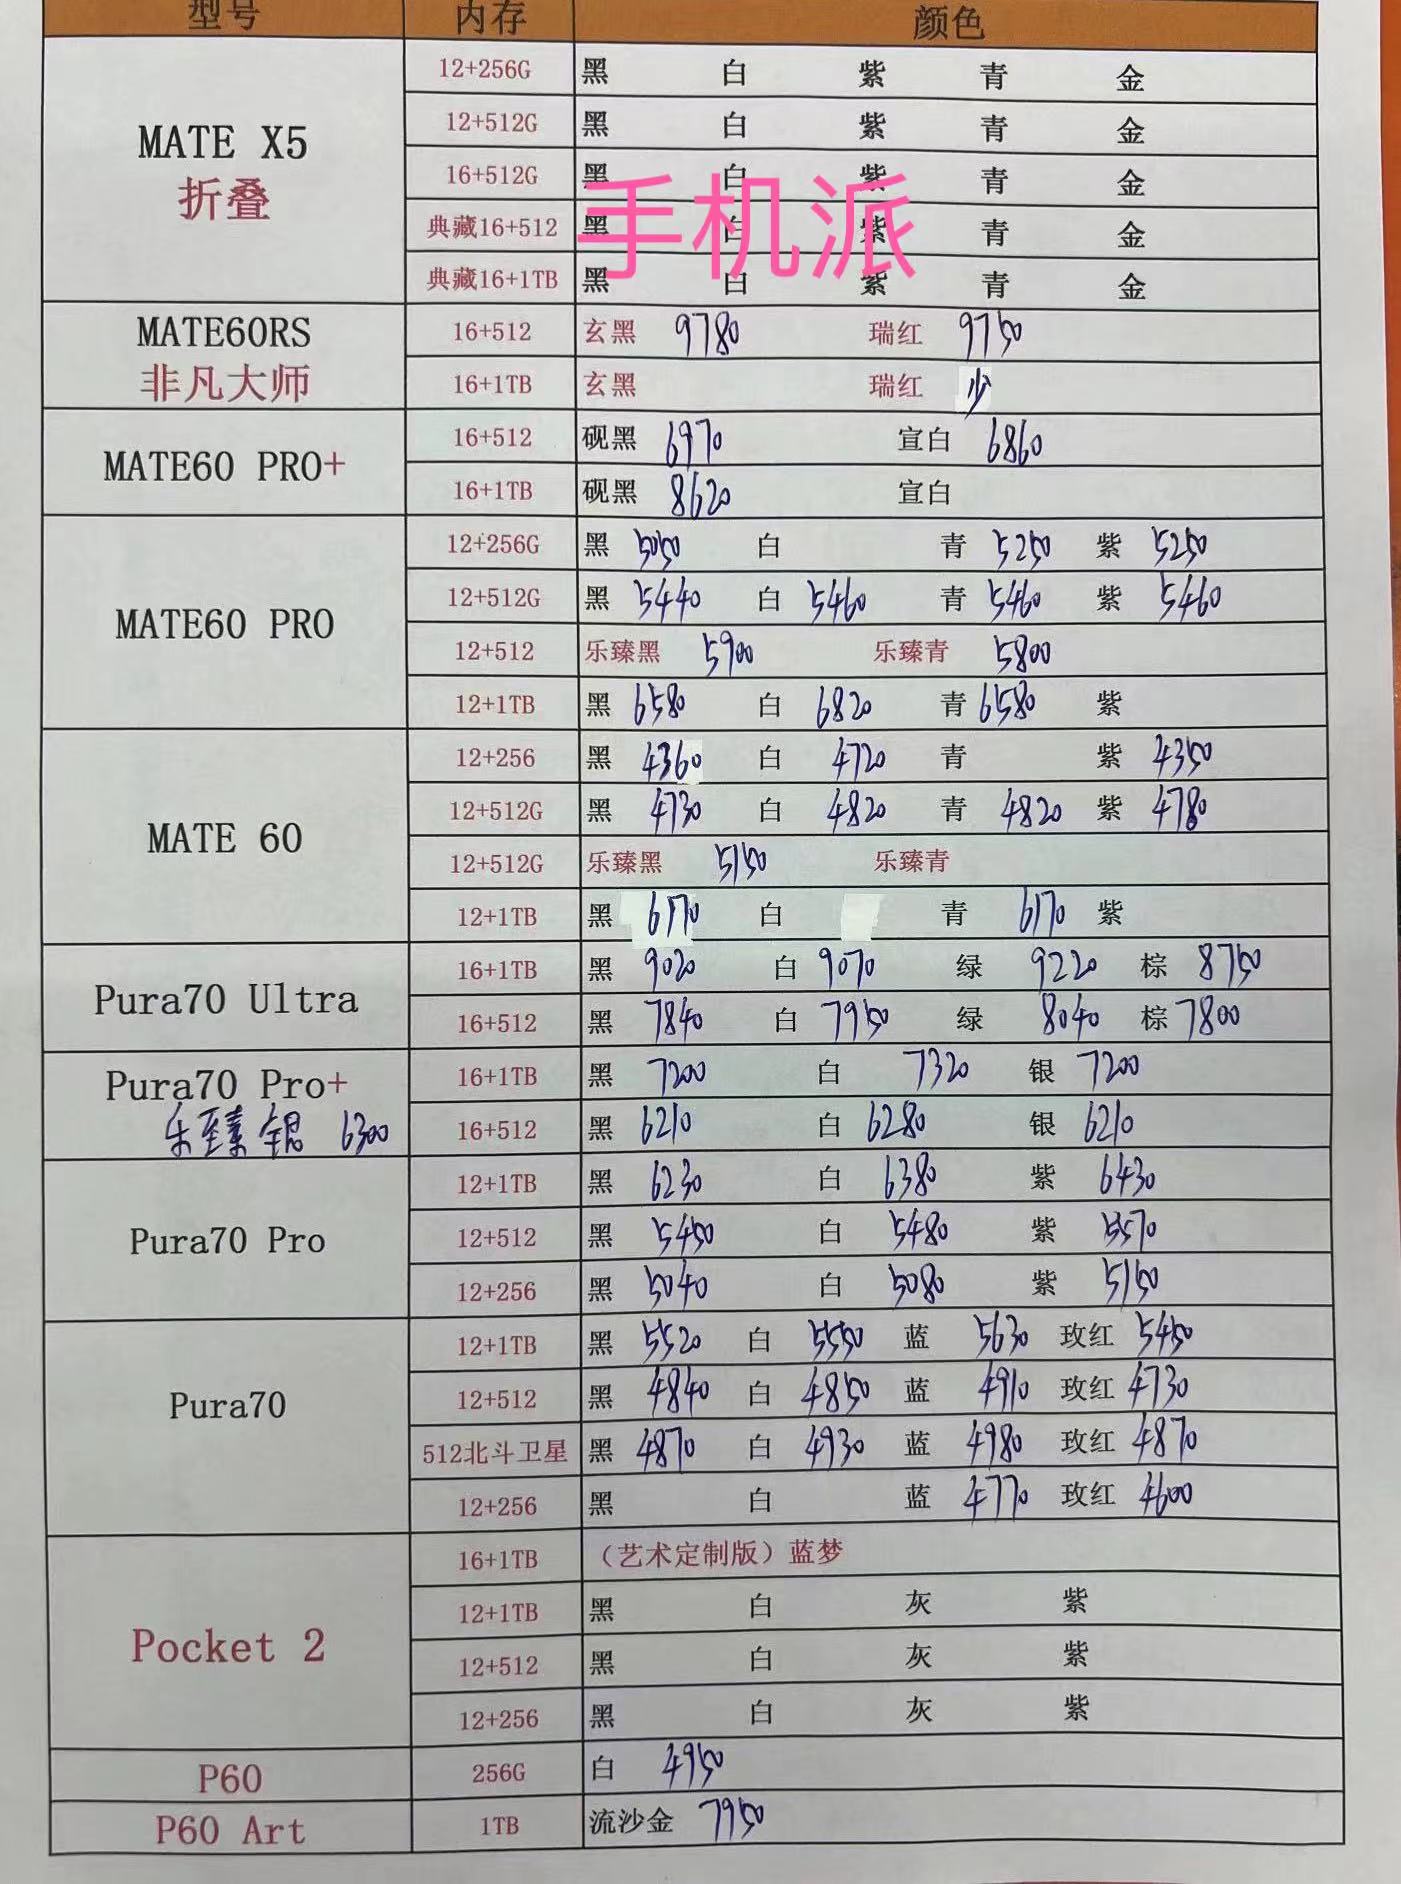 型号 内存 颜色
MATE X5
折叠
12+256G 黑 白 紫 青 金
12+512G 黑 白 紫 青 金
16+512G 黑 白 紫 青 金
手机派
典藏16+512 黑 白 紫 青 金
典藏16+1TB 黑 白 紫 青 金
MATE60RS
非凡大师
16+512 玄黑 9780 瑞红 9750
16+1TB 玄黑 瑞红 少
MATE60 PRO+
16+512 砚黑 6970 宣白 6860
16+1TB 砚黑 8620 宣白
MATE60 PRO
12+256G 黑 5050 白 青 5250 紫 5250
12+512G 黑 5440 白 5460 青 5460 紫 5460
12+512 乐臻黑 5900 乐臻青 5800
12+1TB 黑 6580 白 6820 青 6580 紫
MATE 60
12+256 黑 4360 白 4720 青 紫 4350
12+512G 黑 4730 白 4820 青 4820 紫 4780
12+512G 乐臻黑 5150 乐臻青
12+1TB 黑 6170 白 青 6170 紫
Pura70 Ultra
16+1TB 黑 9020 白 9070 绿 9220 棕 8750
16+512 黑 7840 白 7950 绿 8040 棕 7800
Pura70 Pro+
乐臻银 6300
16+1TB 黑 7200 白 7320 银 7200
16+512 黑 6210 白 6280 银 6210
Pura70 Pro
12+1TB 黑 6230 白 6380 紫 6430
12+512 黑 5450 白 5480 紫 5570
12+256 黑 5040 白 5080 紫 5150
Pura70
12+1TB 黑 5520 白 5550 蓝 5630 玫红 5450
12+512 黑 4840 白 4850 蓝 4910 玫红 4730
512北斗卫星 黑 4870 白 4930 蓝 4980 玫红 4870
12+256 黑 白 蓝 4770 玫红 4600
Pocket 2
16+1TB （艺术定制版）蓝梦
12+1TB 黑 白 灰 紫
12+512 黑 白 灰 紫
12+256 黑 白 灰 紫
P60 256G 白 4950
P60 Art 1TB 流沙金 7950